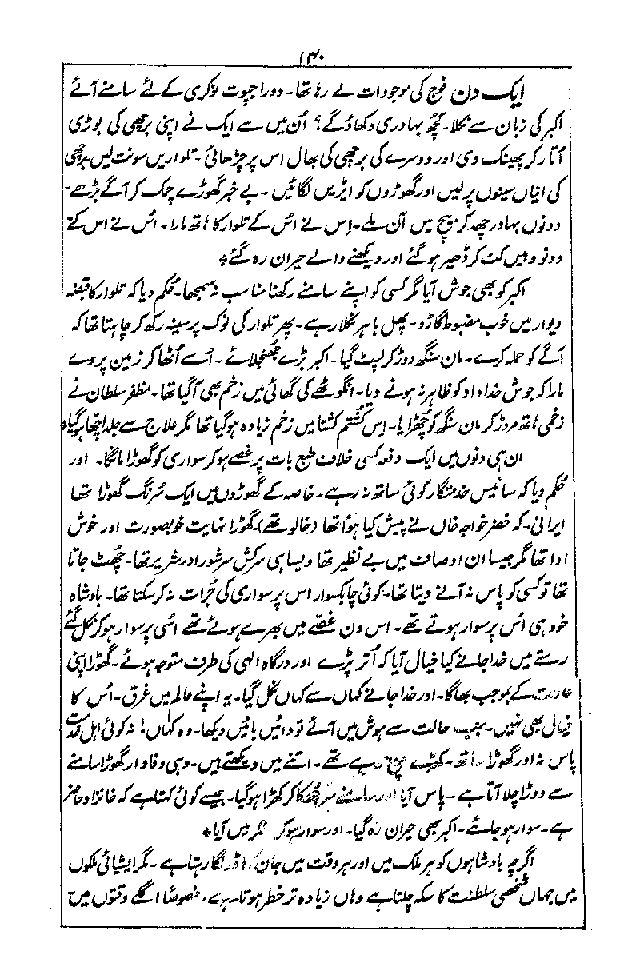 ۱۴۰
ایک دن فوج کی موجودات لے رہا تھا۔ دو راجپوت نوکری کے لئے سامنے آئے
اکبر کی زبان سے نکلا۔ کچھ بہادری دکھاؤ گے؟ اُن میں سے ایک نے اپنی برچھی کی بوڑی
اُتار کر پھینک دی اور دوسرے کی برچھی کی بھال اس پر چڑھائی۔ تلواریں سونت لیں برچھی
کی انیاں سینوں پر لیں اور گھوڑوں کو ایڑیں لگائیں۔ بے خبر گھوڑے چمک کر آگے بڑھے۔
دونوں بہادر چھد کر بیچ میں آن ملے۔ اِس نے اُس کے تلوار کا ہاتھ مارا۔ اُس نے اس کے
دونو وہیں کٹ کر ڈھیر ہو گئے اور دیکھنے والے حیران رہ گئے*
اکبر کو بھی جوش آیا مگر کسی کو اپنے سامنے رکھنا مناسب نہ سمجھا۔ حکم دیا کہ تلوار کا قبضہ
دیوار میں خوب مضبوط گاڑو۔ پھل باہر نکلا رہے۔ پھر تلوار کی نوک پر سینہ رکھ کر چاہتا تھا کہ
آگے کو حملہ کرے۔ مان سنگھ دوڑ کر لپٹ گیا۔ اکبر بڑے جھنجلائے۔ اُسے اُٹھا کر زمین پر دے
مارا کہ جوش خداداد کو ظاہر نہ ہونے دیا۔ انگوٹھے کی گھائی میں زخم بھی آگیا تھا۔ مظفر سلطان نے
زخمی ہاتھ مروڑ کر مان سنگھ کو چھڑایا۔ اِس کشتم کشتا میں زخم زیادہ ہو گیا تھا مگر علاج سے جلد اچھا ہو گیا*
ان ہی دنوں میں ایک دفعہ کسی خلاف طبع بات پر غصے ہو کر سواری کو گھوڑا مانگا۔ اور
حکم دیا کہ سائیس خدمتگار کوئی ساتھ نہ رہے۔ خاصہ کے گھوڑوں میں ایک سُرنگ گھوڑا تھا
ایرانی۔ کہ خضر خواجہ خاں نے پیش کیا ہوا تھا (خالو تھے) گھوڑا نہایت خوبصورت اور خوش
ادا تھا مگر جیسا ان اوصاف میں بے نظیر تھا ویسا ہی سرکش سرشور اور شریر تھا۔ چُھٹ جاتا
تھا تو کسی کو پاس نہ آنے دیتا تھا۔ کوئی چابکسوار اس پر سواری کی جُرات نہ کر سکتا تھا۔ بادشاہ
خود ہی اُس پر سوار ہوتے تھے۔ اس دن غصّے میں بھرے ہوئے تھے اُسی پر سوار ہو کر نکل گئے
رستے میں خدا جانے کیا خیال آیا کہ اُتر پڑے اور درگاہ الٰہی کی طرف متوجہ ہوئے۔ گھوڑا اپنی
عادت کے بموجب بھاگا۔ اور خدا جانے کہاں سے کہاں نکل گیا۔ یہ اپنے عالم میں غرق۔ اُس کا
خیال بھی نہیں۔ جب حالت سے ہوش میں آئے تو دائیں بائیں دیکھا۔ وہ کہاں! نہ کوئی اہل خدمت
پاس نہ اور گھوڑا ساتھ۔ کھڑے سوچ رہے تھے۔ اتنے میں دیکھتے ہیں۔ وہی وفادار گھوڑا سامنے
سے دوڑا چلا آتا ہے۔ پاس آیا اور سامنے سر جھکا کر کھڑا ہو گیا۔ جیسے کوئی کہتا ہے کہ خانہ زاد حاضر
ہے۔ سوار ہو جائے۔ اکبر بھی حیران رہ گیا۔ اور سوار ہو کر لشکر میں آیا*
اگرچہ بادشاہوں کو ہر ملک میں اور ہر وقت میں جان کا ڈر لگا رہتا ہے۔ مگر ایشیائی ملکوں
میں جہاں شخصی سلطنت کا سکہ چلتا ہے وہاں زیادہ تر خطر ہوتا ہے۔ خصوصاً اگلے وقتوں میں